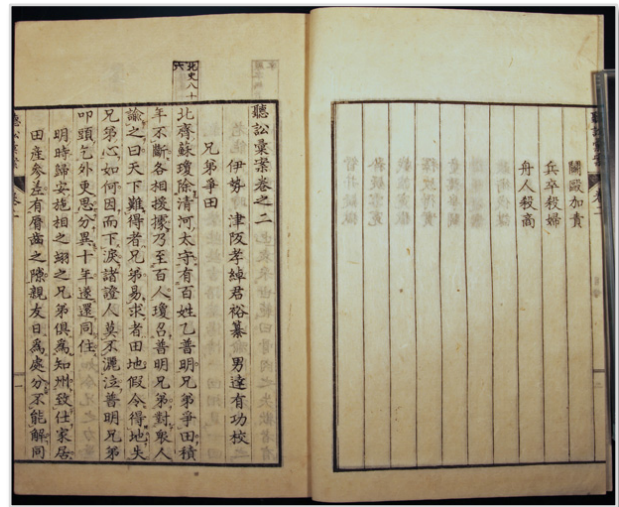 鬭毆加責
兵卒殺婦
舟人殺商
聽訟彙案卷之二
伊勢 津阪孝綽君裕纂 男達有功校
兄弟爭田
北史八十六
北齊蘇瓊除清河太守有百姓乙普明兄弟爭田積
年不斷各相援據乃至百人瓊召普明兄弟對衆人
諭之曰天下難得者兄弟易求者田地假令得地失
兄弟心如何因而下淚諸證人莫不灑泣普明兄弟
叩頭乞外更思分異十年遂還同住
明時歸安施相之翊之兄弟俱爲知州致仕家居
田産參差有脣齒之隙親友日爲處分不能解同